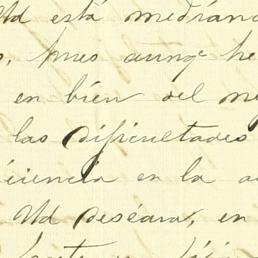 Ud está medran
, pues aunqe he
en bien del me
las dificultades
iciencia en la a
Ud deseara, en